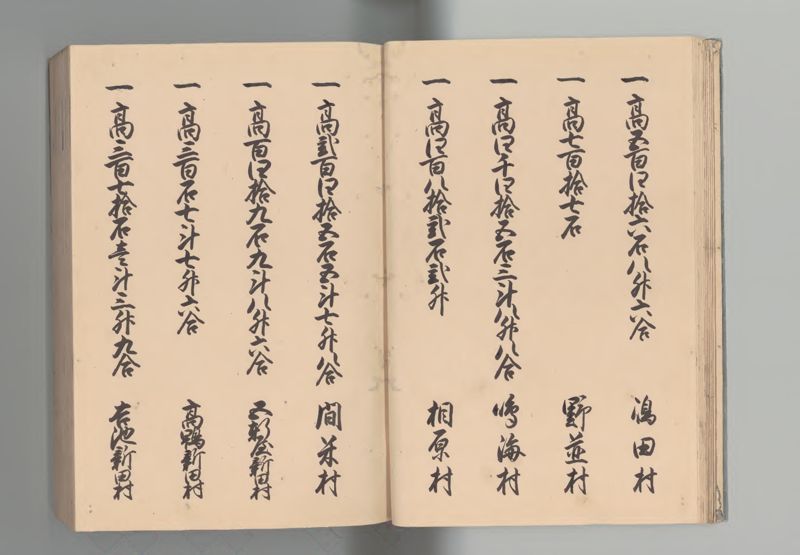 一 高五百四拾六石八升六合 嶋田村
一 高七百拾七石 野並村
一 高四千四拾五石三斗八升八合 鳴海村
一 高四百八拾弐石弐升 相原村
一 高弐百四拾五石五斗七升八合 間米村
一 高百四拾九石九斗八升六合 又郎屋新田村
一 高三百石七斗七升六合 高鴨新田村
一 高三百七拾石壱斗三升九合 長池新田村